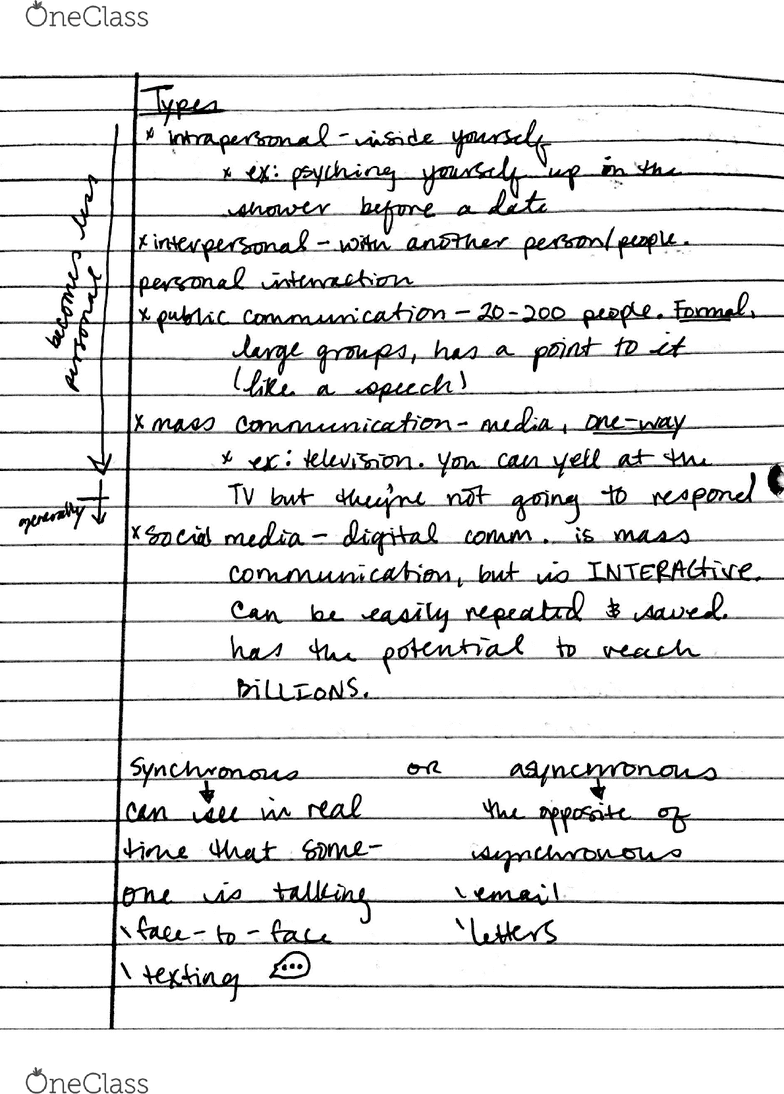 OneClass
Types
* intrapersonal - inside yourself
* ex: psyching yourself up in the
shower before a date
* interpersonal - with another person/people.
personal interaction
* public communication - 20-200 people. Formal,
large groups, has a point to it
(like a speech)
* mass communication - media, one-way
* ex: television. you can yell at the
TV but they're not going to respond
* social media - digital comm. is mass
communication, but is INTERACtive.
Can be easily repeated & saved.
has the potential to reach
BiLLIONS.
becomes less
personal
generally
synchronous OR asynchronous
can see in real the opposite of
time that some- synchronous
one is talking \ email
\ face-to-face \ letters
\ texting
OneClass